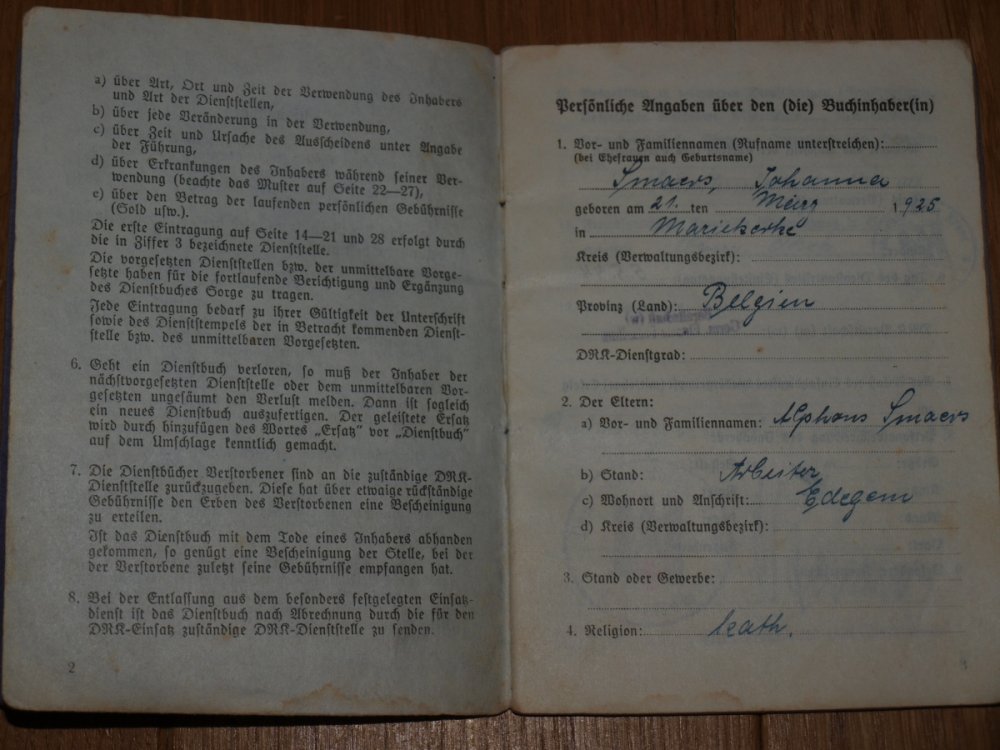 a) über Art, Ort und Zeit der Verwendung des Inhabers
und Art der Dienststellen,
b) über jede Veränderung in der Verwendung,
c) über Zeit und Ursache des Ausscheidens unter Angabe
der Führung,
d) über Erkrankungen des Inhabers während seiner Ver-
wendung (beachte das Muster auf Seite 22—27),
e) über den Betrag der laufenden persönlichen Gebührnisse
(Sold usw.).
Die erste Eintragung auf Seite 14—21 und 28 erfolgt durch
die in Ziffer 3 bezeichnete Dienststelle.
Die vorgesetzten Dienststellen bzw. der unmittelbare Vorge-
setzte haben für die fortlaufende Berichtigung und Ergänzung
des Dienstbuches Sorge zu tragen.
Jede Eintragung bedarf zu ihrer Gültigkeit der Unterschrift
sowie des Dienststempels der in Betracht kommenden Dienst-
stelle bzw. des unmittelbaren Vorgesetzten.
6. Geht ein Dienstbuch verloren, so muß der Inhaber der
nächstvorgesetzten Dienststelle oder dem unmittelbaren Vor-
gesetzten ungesäumt den Verlust melden. Dann ist sogleich
ein neues Dienstbuch auszufertigen. Der geleistete Ersatz
wird durch hinzufügen des Wortes „Ersatz" vor „Dienstbuch"
auf dem Umschlage kenntlich gemacht.
7. Die Dienstbücher Verstorbener sind an die zuständige DRK-
Dienststelle zurückzugeben. Diese hat über etwaige rückständige
Gebührnisse den Erben des Verstorbenen eine Bescheinigung
zu erteilen.
Ist das Dienstbuch mit dem Tode eines Inhabers abhanden
gekommen, so genügt eine Bescheinigung der Stelle, bei der
der Verstorbene zuletzt seine Gebührnisse empfangen hat.
8. Bei der Entlassung aus dem besonders festgelegten Einsatz-
dienst ist das Dienstbuch nach Abrechnung durch die für den
DRK-Einsatz zuständige DRK-Dienststelle zu senden.
2
Persönliche Angaben über den (die) Buchinhaber(in)
1. Vor- und Familiennamen (Rufname unterstreichen):
(bei Ehefrauen auch Geburtsname)
Smaers, Johanna
geboren am 21. ten März 1925
in Mariekerke
Kreis (Verwaltungsbezirk):
Provinz (Land): Belgien
DRK-Dienstgrad:
2. Der Eltern:
a) Vor- und Familiennamen: Alphons Smaers
b) Stand: Arbeiter
c) Wohnort und Anschrift: Edegem
d) Kreis (Verwaltungsbezirk):
3. Stand oder Gewerbe:
4. Religion: kath.